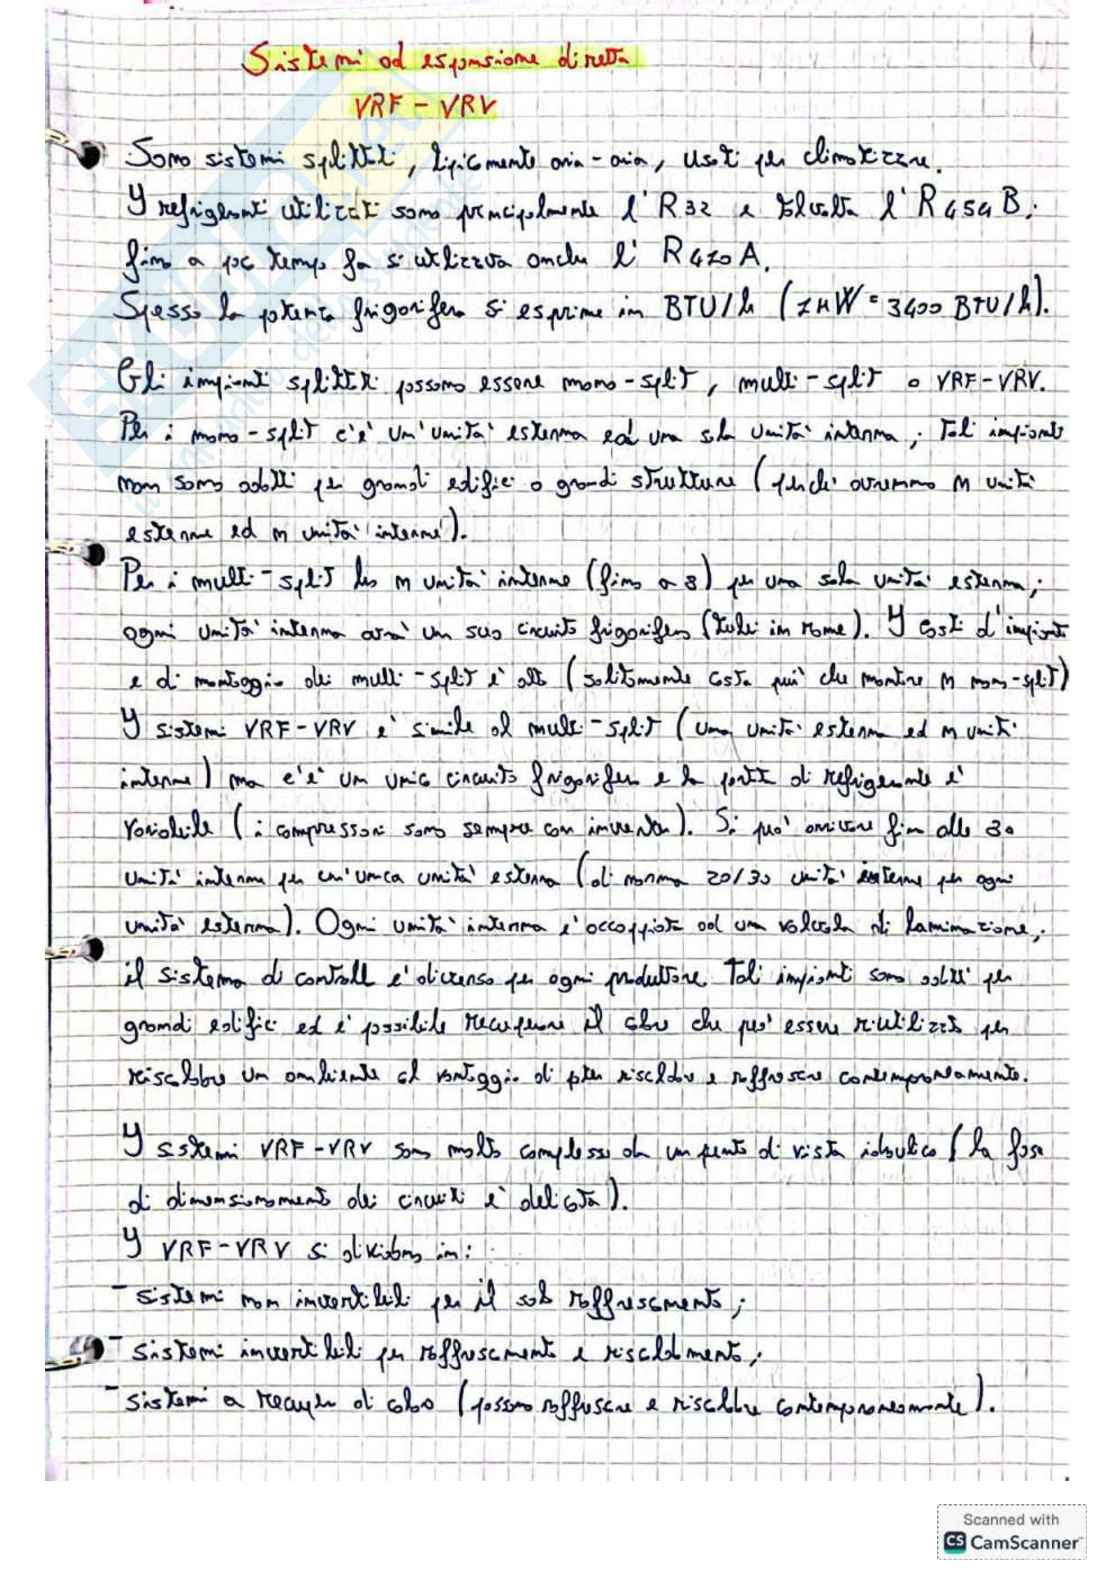 Sistemi ad espansione diretta
VRF - VRV
Sono sistemi splittati, tipicmente aria-aria, usati per climatizzare.
I refrigeranti utilizzati sono principalmente l'R32 e talvolta l'R454B;
fino a poc tempo fa si utilizzava anche l'R410A.
Spesso la potenza frigorifera si esprime in BTU/h (1kW = 3400 BTU/h).
Gli impianti splittati possono essere mono-split, multi-split o VRF-VRV.
Per i mono-split c'è un'unità esterna ed una sola unità interna; tali impianti
non sono adatti per grandi edifici o grandi strutture (perché avremmo n unità
esterne ed n unità interne).
Per i multi-split ho n unità interne (fino a 8) per una sola unità esterna;
ogni unità interna avrà un suo circuito frigorifero (tubi in rame). I costi d'impianto
e di montaggio dei multi-split è alto (solitamente costa più che montare n mono-split)
I sistemi VRF-VRV è simile al multi-split (una unità esterna ed n unità
interne) ma c'è un unico circuito frigorifero e la portata di refrigerante è
variabile (i compressori sono sempre con inverter). Si può arrivare fino alle 80
unità interne per un'unica unità esterna (di norma 20/30 unità interne per ogni
unità esterna). Ogni unità interna è accoppiata ad una valvola di laminazione;
il sistema di controllo è diverso per ogni produttore. Tali impianti sono adatti per
grandi edifici ed è possibile recuperare il calore che può essere riutilizzato per
riscaldare un ambiente al vantaggio di poter riscaldare e raffrescare contemporaneamente.
I sistemi VRF-VRV sono molto complessi da un punto di vista idraulico (la fase
di dimensionamento dei circuiti è delicata).
I VRF-VRV si dividono in:
- sistemi non invertibili per il solo raffrescamento;
- sistemi invertibili per raffrescamento e riscaldamento;
- sistemi a recupero di calore (possono raffrescare e riscaldare contemporaneamente).
Scanned with
CS CamScanner